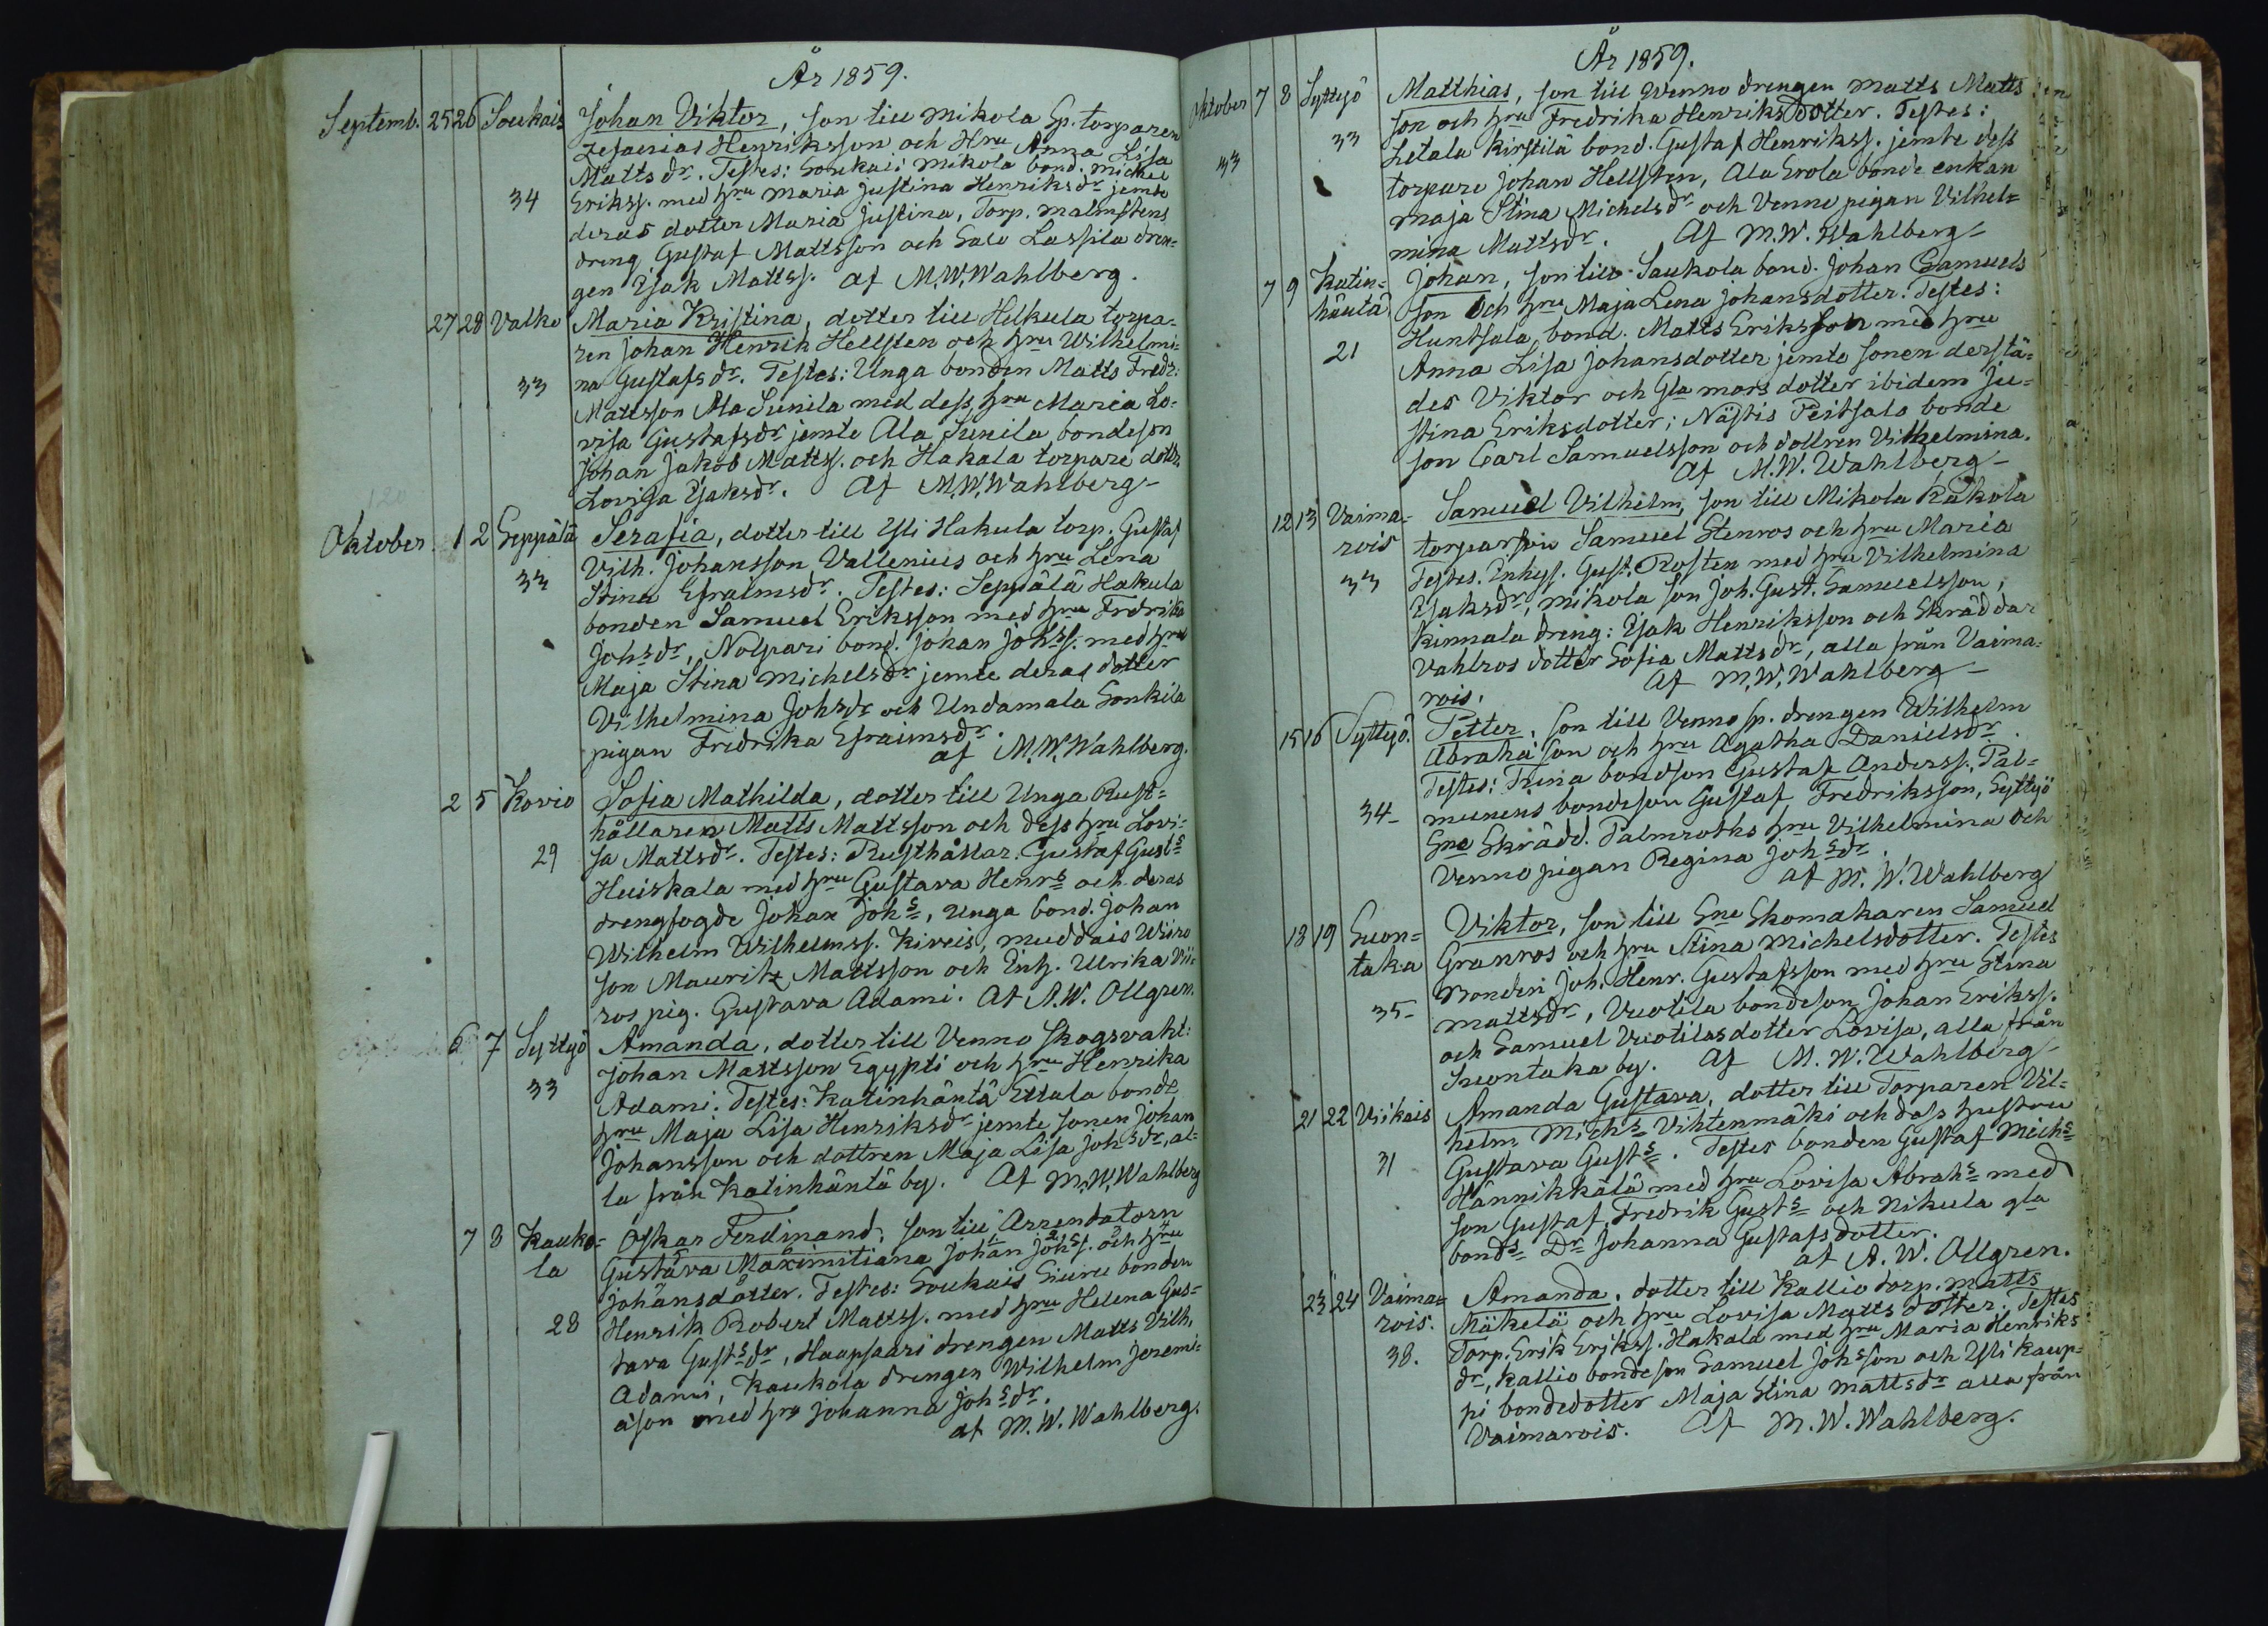 År 1859.
Septemb. 25 26 Soukais Johan Viktor, son till Mikola Sp. torparen
Zefanias Henriksson och Hru Anna Lisa
Matts dr. Testes: Soukais Mikola bond. Michel
34 Erikss. med hru Maria Justina Henriksdr jemte
deras dotter Maria Justina, Torp. Malmstens
dreng Gustaf Mattsson och Salo Lassila dren-
gen Isak Mattss. af M.W. Wahlberg.
27 28 Valko Maria Kristina, dotter till Helkula torpa-
ren Johan Henrik Hellsten och hru Wilhelmi-
33 na Gustafs dr. Testes: Unga bonden Matts Fredr:
Mattsson Ala Sunila med dess hru Maria Lo-
visa Gustafsdr jemte Ala Sunila bondeson
Johan Jakob Mattss. och Hakala torpare dottr.
Lovisa Isaksdr. Af M.W. Wahlberg
Oktober 1 2 Seppälä Serafia, dotter till Yli Hakula torp. Gustaf
Vilh. Johansson Vallenius och hru Lena
33 Stina Efraimsdr. Testes: Seppälä Hakula
bonden Samuel Eriksson med hru Fredrika
Johsdr, Nolpari bond. Johan Johss. med hru
Maja Stina Michelsdr jemte deras dotter
Vilhelmina Johsdr och Undamala Sonkila
pigan Fredrika Efraimsdr.
af M.W. Wahlberg.
2 5 Kovio Sofia Mathilda, dotter till Unga Rust-
hållaren Matts Mattsson och dess hru Lovi-
29 sa Mattsdr. Testes: Rusthållar. Gustaf Gusts
Heiskala med hru Gustava Henrs och deras
drengfogde Johan Johs, Unga bond. Johan
Wilhelm Wilhelmss. Kiveis, Muddais Wiiro
son Mauritz Mattsson och Enk. Ulrika Vii-
ros pig. Gustava Adami. Af A.W. Ollgren.
6 7 Syttyö Amanda, dotter till Venno Skogsvakt:
Johan Mattsson Egypti och hru Henrika
33 Adami. Testes: Katinhäntä Ettala bonde
hru Maja Lisa Henriksdr jemte sonen Johan
Johansson och dottren Maja Lisa Johsdr, al-
la från Katinhäntä by. Af M.W. Wahlberg
7 8 Kauko- Oskar Ferdinand, son till Arrendatorn
la Gustava Maximiliana Johan Johss. och hru
Johansdotter. Testes: Soukais Siuru bonden
28 Henrik Robert Mattss. med hru Helena Gus-
tava Gustsdr, Haapsaari drengen Matts Vilh.
Adami, Kaukola drengen Wilhelm Jeremi-
ason med hru Johanna Johsdr.
af M.W. Wahlberg.
År 1859.
Oktober 7 8 Syttyö Matthias, son till Wenno drengen Matts Matts
son och hru Fredrika Henriksdotter. Testes:
33 33 Letala Kirstilä bond. Gustaf Henrikss. jemte dess
torpare Johan Hellsten, Ala Erola bonde enkan
Maja Stina Michelsdr och Venno pigan Vilhel-
mina Mattsdr. Af M.W. Wahlberg
7 9 Katin- Johan, son till Saukola bond. Johan Samuels
häntä son och hru Maja Lena Johansdotter. Testes:
21 Huntsala bond. Matts Eriksson med hru
Anna Lisa Johansdotter jemte sonen derstä-
des Viktor och Gla mors dotter ibidem Ju-
stina Eriksdotter; Nästis Peitsalo bonde
son Carl Samuelsson och dottren Vilhelmina.
Af M.W. Wahlberg
12 13 Vaima- Samuel Vilhelm, son till Mikola Kakola
rois torparson Samuel Stenros och hru Maria
33 Testes. Inhys. Gust. Rosten med hru Vilhelmina
Isaksdr, Mikola son Joh. Gust. Samuelsson,
Kinnala dreng: Isak Henriksson och Skräddar
Vahlros dotter Sofia Mattsdr, alla från Vaima-
rois. af M.W. Wahlberg
15 16 Syttyö. Petter, son till Venno sp. drengen Wilhelm
Abraha son och hru Agatha Danielsdr
Testes: Trina bondson Gustaf Anderss. Pal-
34 munens bondeson Gustaf Fredriksson, Syttyö
Sne Skrädd. Palmroths hru Vilhelmina och
Venno pigan Regina Johsdr.
af M.W. Wahlberg
18 19 Suon- Viktor, son till Sne Skomakaren Samuel
taka Granros och hru Stina Michelsdotter. Testes
Bonden Joh. Henr. Gustafsson med hru Stina
35 Mattsdr, Vuotila bondeson Johan Erikss.
och Samuel Vuotilas dotter Lovisa, alla från
Suontaka by. Af M.W. Wahlberg
21 22 Viikais Amanda Gustava, dotter till Torparen Vil-
helm Michs Vihtenmäki och dess hustru
31 Gustava Gusts. Testes bonden Gustaf Michs
Hännikkälä med hru Lovisa Abrahs med
son Gustaf Fredrik Gusts och Nikula gla
bonds Dr Johanna Gustafsdotter.
af A.W. Ollgren.
23 24 Vaima- Amanda, dotter till Kallio torp. Matts
rois. Mäkelä och hru Lovisa Matts dotter. Testes
38. Torp. Erik Erikss. Hakala med hru Maria Henriks
dr, Kallio bondeson Samuel Johsson och Yli Kaup-
pi bondedotter Maja Stina Mattsdr alla från
Vaimarois. Af M.W. Wahlberg.